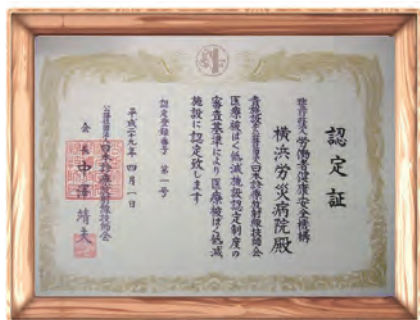 認定証
独立行政法人労働者健康安全機構
横浜労災病院殿
貴施設を公益社団法人日本診療放射線技師会
医療被ばく低減施設認定制度の
審査基準により医療被ばく低減
施設に認定致します
認定登録番号 第一号
平成二十九年四月一日
公益社団法人日本診療放射線技師会
会長 中澤靖夫